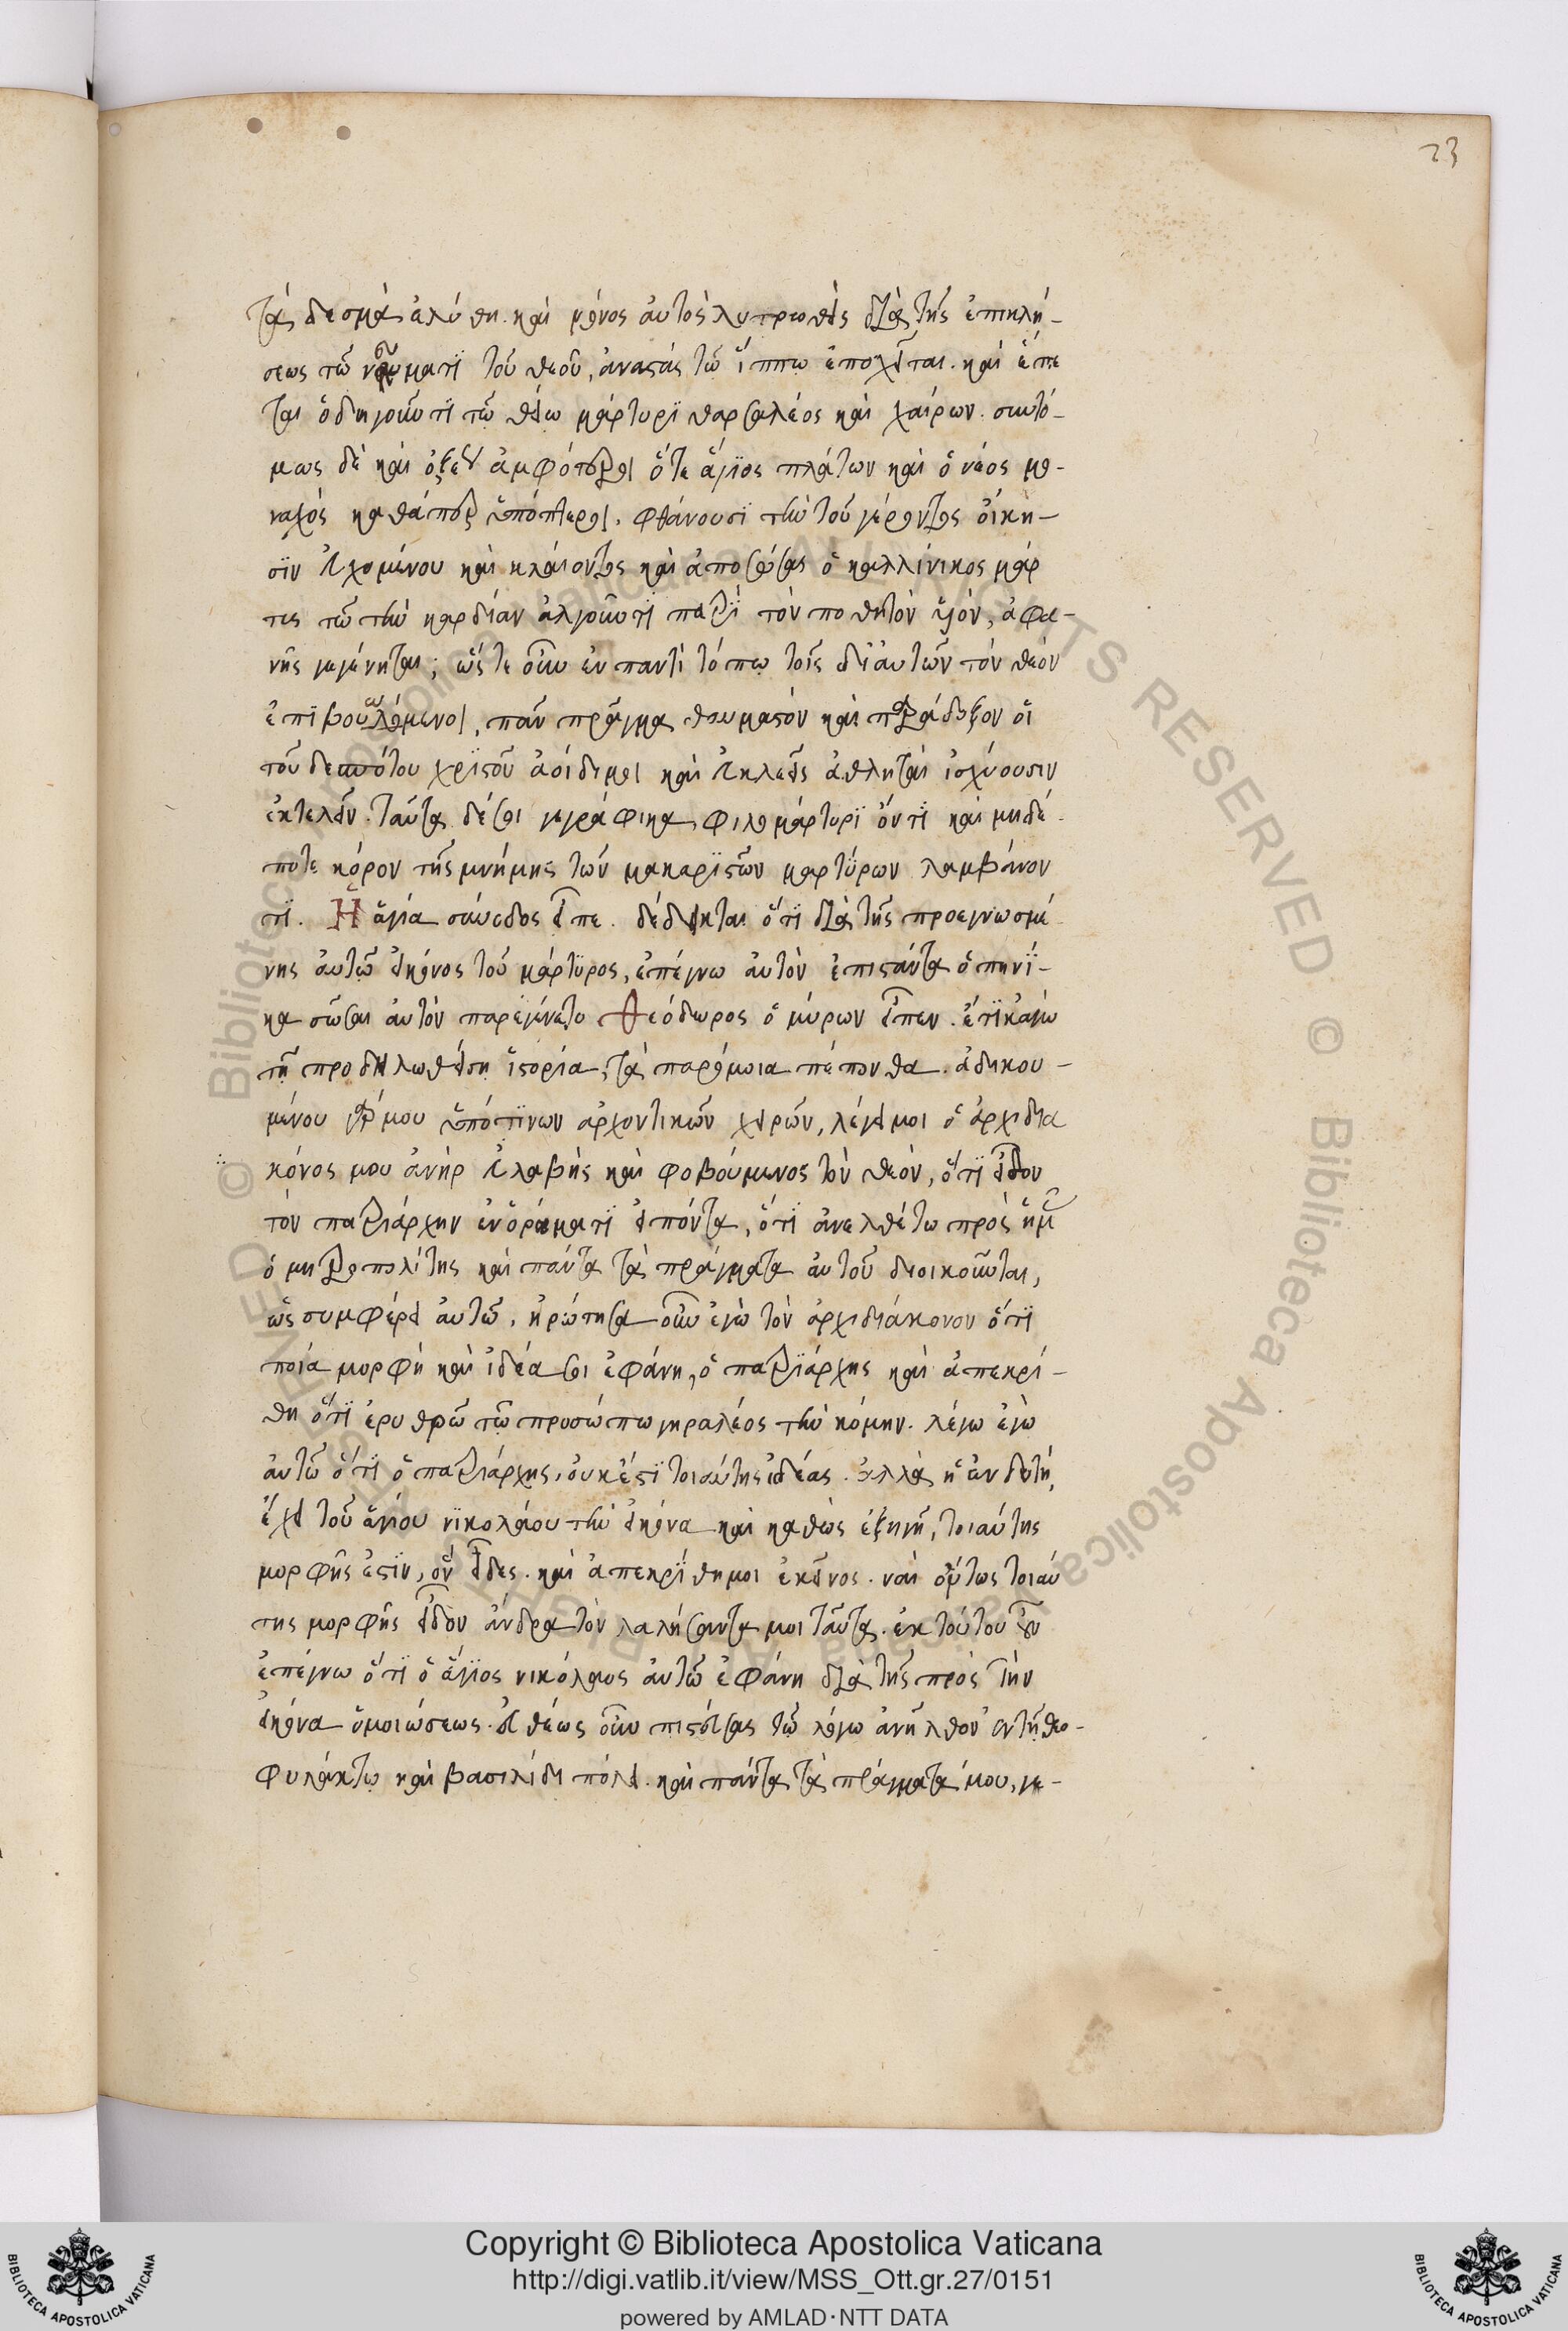 23
τὰ δεσμὰ ἐλύθη. καὶ μόνος αὐτὸς λυτρωθεὶς διὰ τῆς ἐπικλή-
σεως τῶ νεύματι τοῦ θεοῦ, ἀναστὰς τῶ ἵππω ἐποχεῖται. καὶ ἕπε
ται ὁδηγοῦντι τῶ θείω μάρτυρι θαρσαλέος καὶ χαίρων. συντό-
μως δὲ καὶ ὀξεῖ ἀμφότεροι ὅτε ἅγιος πλάτων καὶ ὁ νέος μο-
ναχὸς καθάπερ ὑπόπτεροι. φθάνουσι τὴν τοῦ γέροντος οἴκη-
σιν εὐχομένου καὶ κλαίοντος καὶ ἀποσώσας ὁ καλλίνικος μάρ
τις τῶ τὴν καρδίαν ἀλγοῦντι πατρὶ τὸν ποθητὸν υἱόν, ἀφα-
νὴς γεγένηται; ὥστε οὖν ἐν παντὶ τόπω τοῖς δι αὐτῶν τὸν θεὸν
ἐπιβοωμένοι, πᾶν πρᾶγμα θαυμαστὸν καὶ παράδοξον οἱ
τοῦ δεσπότου χριστοῦ ἀοίδιμοι καὶ εὐκλεεῖς ἀθληταὶ ἰσχύουσιν
ἐκτελεῖν. ταῦτα δέ σοι γεγράφικα, φιλομάρτυρι ὄντι καὶ μηδέ-
ποτε κόρον τῆς μνήμης τῶν μακαριστῶν μαρτύρων λαμβάνον
τι. Ἡ ἁγία σύνοδος εἶπε. δέδεικται ὅτι διὰ τῆς προεγνωσμέ-
νης αὐτῶ εἰκόνος τοῦ μάρτυρος, ἐπέγνω αὐτὸν ἐπιστάντα ὁπηνί-
κα σῶσαι αὐτὸν παρεγένετο Θεόδωρος ὁ μύρων εἶπεν. ἔτι κἀγὼ
τῆ προδηλωθείση ἱστορία, τὰ παρόμοια πέπονθα. ἀδικου-
μένου γάρ μου ὑπό τινων ἀρχοντικῶν χειρῶν, λέγει μοι ὁ ἀρχιδια
κόνος μου ἀνὴρ εὐλαβὴς καὶ φοβούμενος τὸν θεόν, ὅτι εἶδον
τὸν πατριάρχην ἐν ὁράματι εἰπόντα, ὅτι ἀνελθέτω πρὸς ἡμᾶς
ὁ μητροπολίτης καὶ πάντα τὰ πράγματα αὐτοῦ διοικοῦνται,
ὡς συμφέρει αὐτῶ. ἠρώτησα οὖν ἐγὼ τὸν ἀρχιδιάκονον ὅτι
ποία μορφὴ καὶ ἰδέα σοι ἐφάνη, ὁ πατριάρχης καὶ ἀπεκρί-
θη ὅτι ἐρυθρῶ τῶ προσώπω γηραλέος τὴν κόμην. λέγω ἐγὼ
αὐτῶ ὅτι ὁ πατριάρχης, οὐκ ἔστι τοιαύτης ἰδέας. ἀλλὰ
ἔχει τοῦ ἁγίου νικολάου τὴν εἰκόνα καὶ καθὼς ἐξηγῆ, τοιαύτης
μορφῆς ἐστιν, ὃν εἶδες. καὶ ἀπεκρίθη μοι ἐκεῖνος. ναὶ οὕτως τοιαύ
της μορφῆς εἶδον ἄνδρα τὸν λαλήσαντα μοι ταῦτα. ἐκ τούτου οὖν
ἐπέγνω ὅτι ὁ ἅγιος νικόλαος αὐτῶ ἐφάνη διὰ τῆς πρὸς τὴν
εἰκόνα ὁμοιώσεως. εὐθέως οὖν πιστεύσας τῶ λόγω ἀνῆλθον ἐν τῆ θεο-
φυλάκτω καὶ βασιλίδι πόλει. καὶ πάντα τὰ πράγματά μου, γε-
Copyright © Biblioteca Apostolica Vaticana
http://digi.vatlib.it/view/MSS_Ott.gr.27/0151
powered by AMLAD·NTT DATA